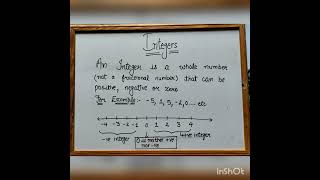 Integers
An Integer is a whole number
(not a fractional number) that can be
positive, negative or zero
For Example:- -5, 1, 5, -2, 0..... etc
-4 -3 -2 -1 0 1 2 3 4
-ve integer 0 is neither +ve nor -ve +ve integer
InShOt